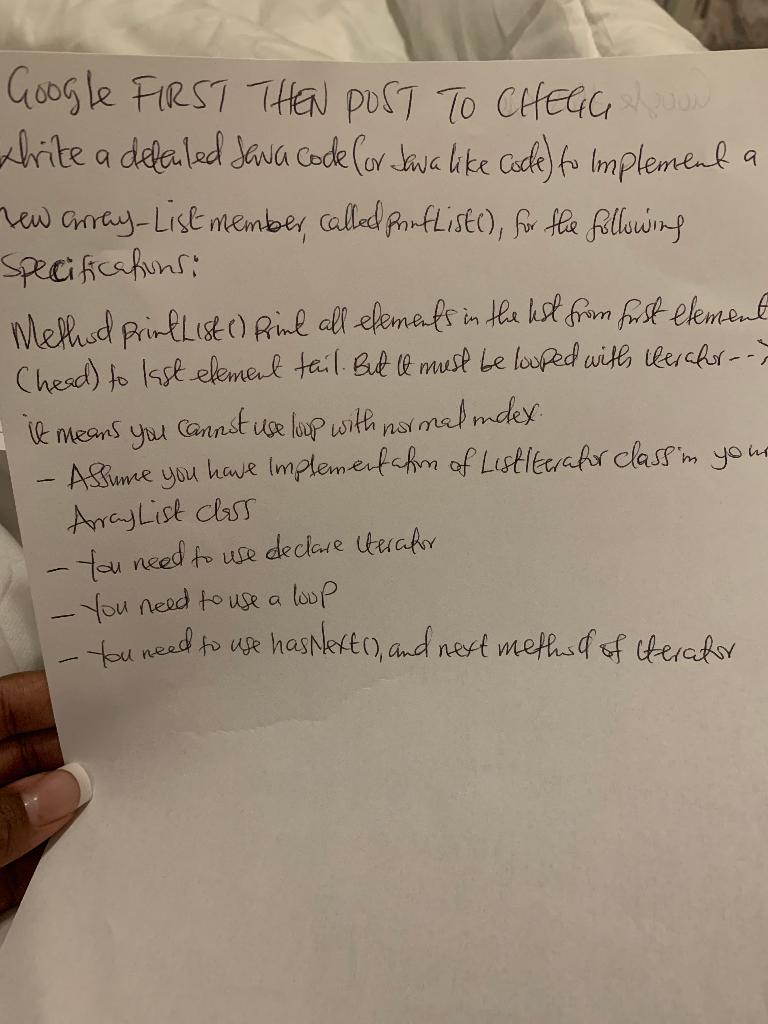 Google FIRST THEN POST TO CHEGG
Write a detailed Java code (or Java like code) to implement a
new array-List member, called printList(), for the following
Specifications:
Method printList() print all elements in the list from first element
(head) to last element tail. But it must be looped with iterator-->
it means you cannot use loop with normal index.
- Assume you have implementation of ListIterator class in your
ArrayList class
- You need to use declare iterator
- You need to use a loop
- You need to use hasNext(), and next method of iterator